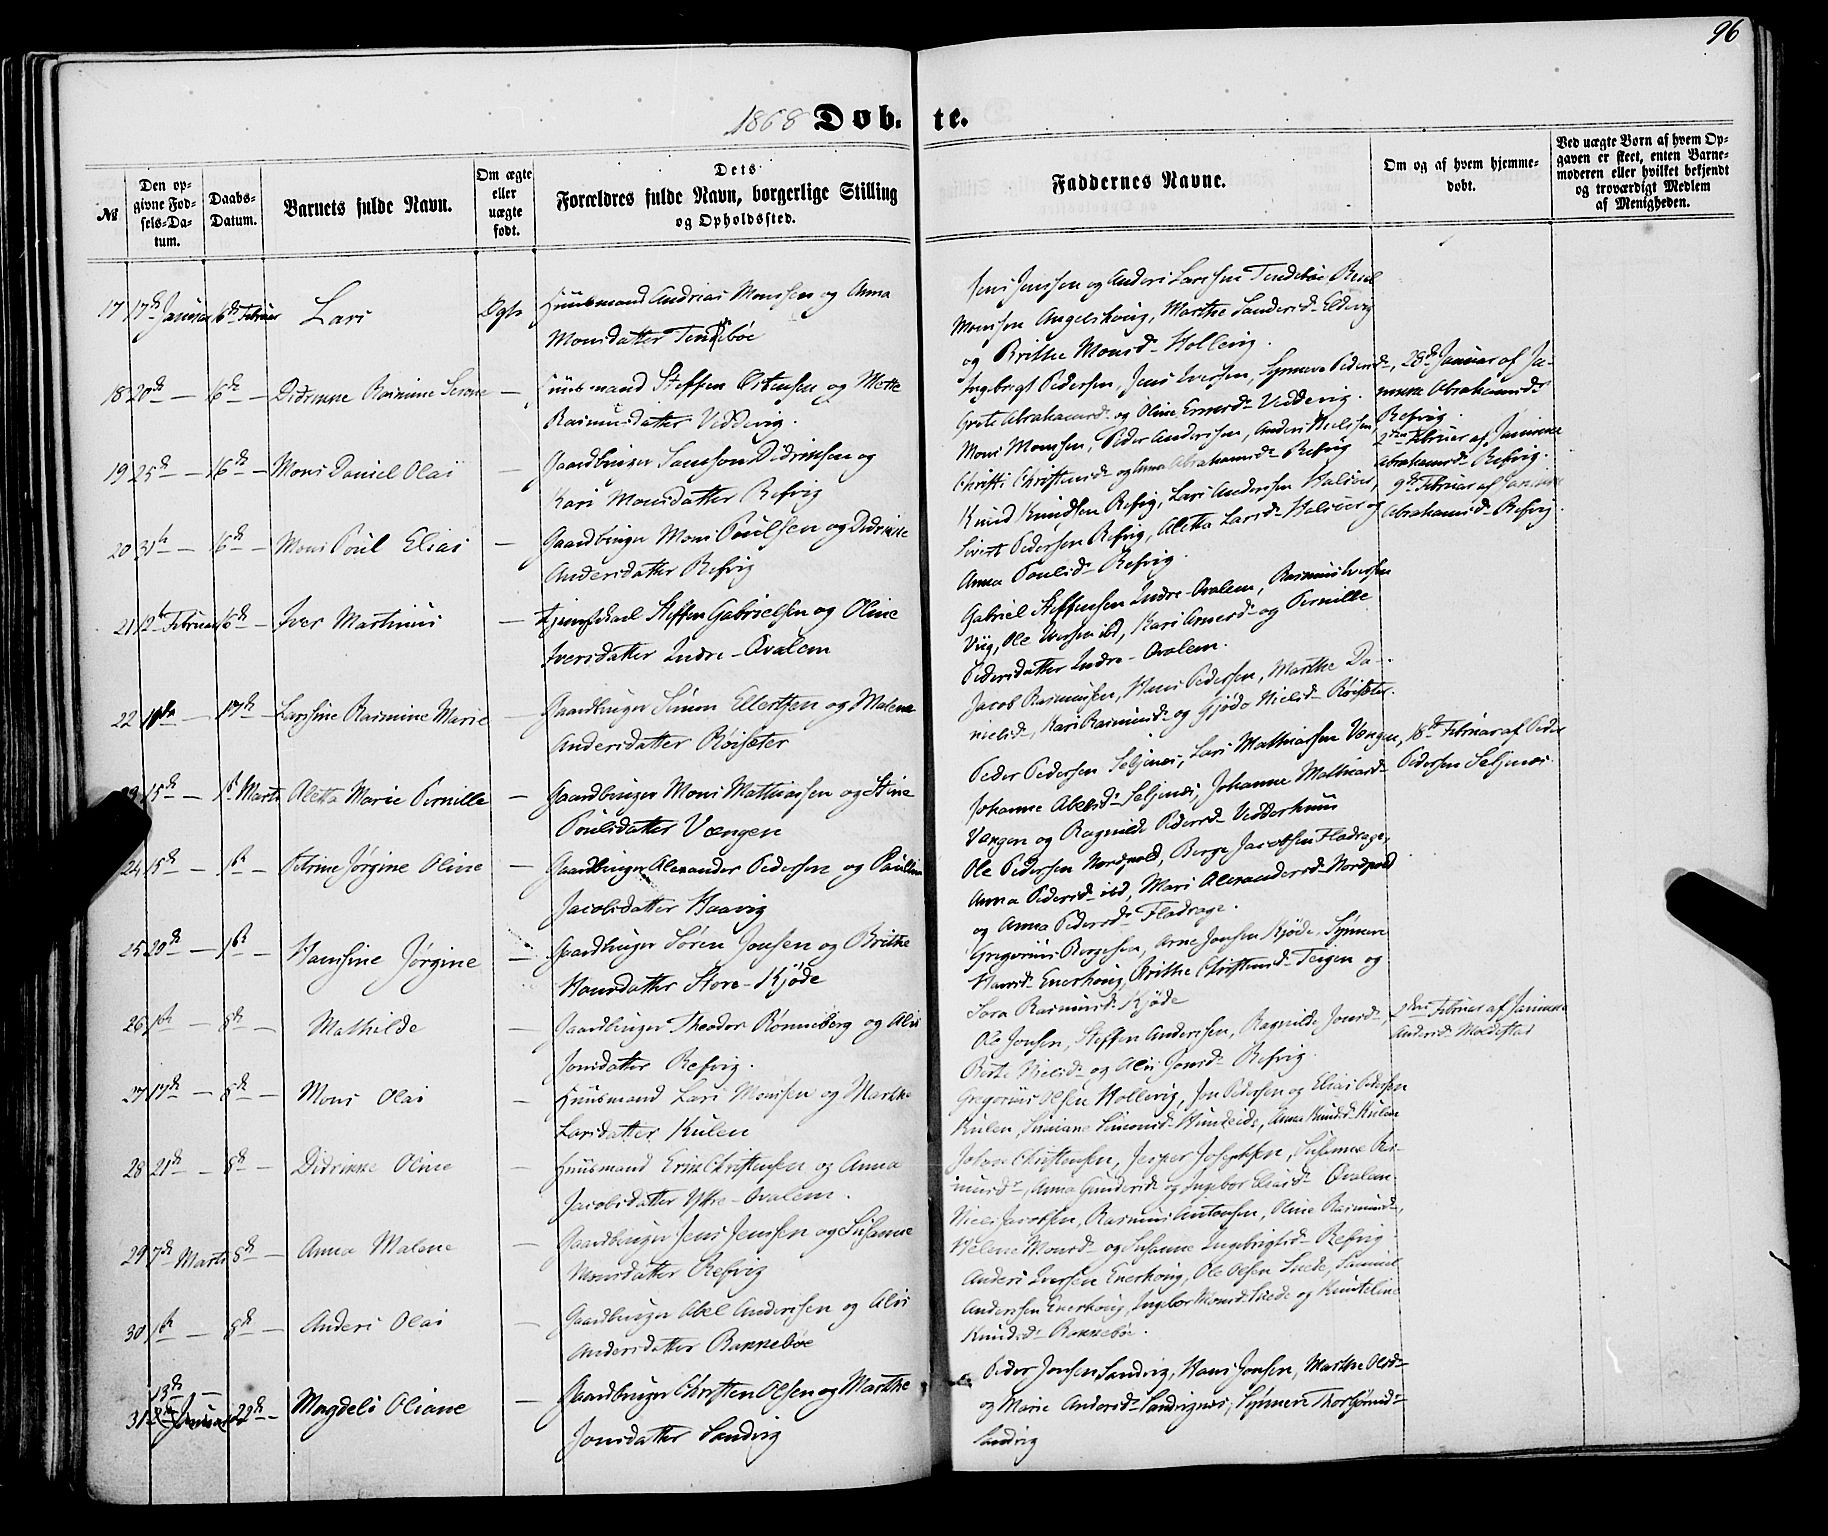 96
1868 Døb. te.
№
Den opgivne Fødsels-Datum.
Daabs-Datum.
Barnets fulde Navn.
Om ægte eller uægte født.
Dets Forældres fulde Navn, borgerlige Stilling og Opholdssted.
Faddernes Navne.
Om og af hvem hjemmedøbt.
Ved uægte Børn af hvem Opgaven er skeet, enten Barnemoderen eller hvilket bekjendt og troværdigt Medlem af Menigheden.
17 17de Januar 16de Februar Lars Ægte Huusmand Andreas Monssen og Anna
Monsdatter Tennebøe
Jens Jenssen og Anders Larssen Tennebøe, Poul
Monssen Angelshoug, Marthe Sandersd. Eldevig
og Brithe Monsd. Hollevig.
18 20de — 16de — Didrikke Rasmine Serine — Huusmand Steffen Østensen og Mette
Rasmusdatter Veddevig.
Ingebrigt Pedersen, Jens Iversen, Synneve Pedersd.,
Grete Abrahamsd. og Oline Ernsd. Veddevig.
28de Januar af Ja-
mine Abrahamsd.
Refvig.
19 25de — 16de — Mons Daniel Olai — Gaardbruger Samson Didriksen og
Kari Monsdatter Refvig
Mons Monssen, Peder Andersen, Anders Nielsen
Christi Christensd. og Anna Abrahamsd. Refvig
2den Februar af Jamine
Abrahamsd. Refvig.
20 31te — 16de — Mons Poul Elias — Gaardbruger Mons Poulsen og Didrikke
Andersdatter Refvig
Knud Knudsen Refvig, Lars Andersen Halsør,
Sivert Pedersen Refvig, Aletta Larsd. Halsør og
Anna Poulsd. Refvig.
9de Februar af Jamine
Abrahamsd. Refvig.
21 12te Februar 16de — Iver Martinus — Steffen Gabrielsen og Oline
Iversdatter Indre-Qvalem
Gabriel Steffensen Indre-Qvalem, Rasmus Iversen
Viig, Ole Iversen ibd, Kari Arnesd. og Pernille
Pedersdatter Indre-Qvalem.
22 — 17de — Larssine Rasmine Marie — Gaardbruger Simon Ellertsen og Malena
Andersdatter Røisæter
Jacob Rasmussen, Hans Pedersen, Marthe Da-
nielsd., Kari Rasmusd. og Gjøde Nielsd. Røisæter.
23 15de — 1ste Marts Aletta Marie Pernille — Gaardbruger Mons Mathiassen og Stine
Poulsdatter Vængen
Peder Pedersen Seljenæs, Lars Mathiassen Vængen,
Johanne Abelsd. Seljenæs, Johanne Mathiasd.
Vængen og Ragnilde Pedersd. Vedderhuus
18de Februar af Peder
Pedersen Seljenæs.
24 15de — 1ste — Petrine Jørgine Oline — Gaardbruger Alexander Pedersen og Pauline
Jacobsdatter Haavig
Ole Pedersen Nordpold, Berge Jacobsen Fladrage,
Anna Pedersd. ibd, Mari Alexandersd. Nordpold
og Anna Pedersd. Fladrage.
25 20de — 1ste — Hanssine Jørgine — Gaardbruger Søren Jonsen og Brithe
Hansdatter Store-Kjøde
Gregorius Børgesen, Arne Jonsen Kjøde, Synneve
Hansd. Enerhoug, Brithe Christensd. Teigen og
Sara Rasmusd. Kjøde
26 1ste — 8de — Mathilde — Gaardbruger Theodor Rønneberg og Alis
Jonsdatter Refvig.
Ole Jonsen, Steffen Andersen, Ragnilde Jonsd.,
Berte Nielsd. og Alis Jonsd. Refvig.
2den Februar af Jamine
Andersd. Moldestad
27 17de — 8de — Mons Olai — Huusmand Lars Monsen og Marthe
Larsdatter Kulen
Gregorius Olsen Hollevig, Jon Pedersen og Elias Pedersen
Kulen, Simonsd. Hunkeide, Anna Knudsd. Kulen
28 21de — 8de — Didrikke Oline — Huusmand Erik Christensen og Anna
Jacobsdatter Ytre-Qvalem.
Johan Christensen, Jesper Josephsen, Susanne Ras-
musd., Anna Gundersd. og Ingebor Eliasd. Qvalem
29 7de Marts 8de — Anna Malene — Gaardbruger Jens Jenssen og Susanne
Monsdatter Refvig
Niels Jacobsen, Rasmus Antonsen, Oline Rasmusd.,
Helene Monsd. og Susanne Ingebrigtsd. Refvig.
30 1ste — 8de — Anders Olai — Gaardbruger Abel Andersen og Alis
Andersdatter Bakkebøe
Anders Iversen Enerhoug, Ole Olsen Leede, Samuel
Andersen Enerhoug, Ingebor Monsd. Leede og Knuteline
Knudsd. Bakkebøe.
31 13de — Januar 22de — Magdeli Oliane — Gaardbruger Christen Olsen og Marthe
Jonsdatter Sandvig
Peder Jonsen Sandvig, Hans Jonsen, Marthe Olsd.
og Marie Andersd. Sandvignæs, Synneve Thorbjørnsd.
Sandvig